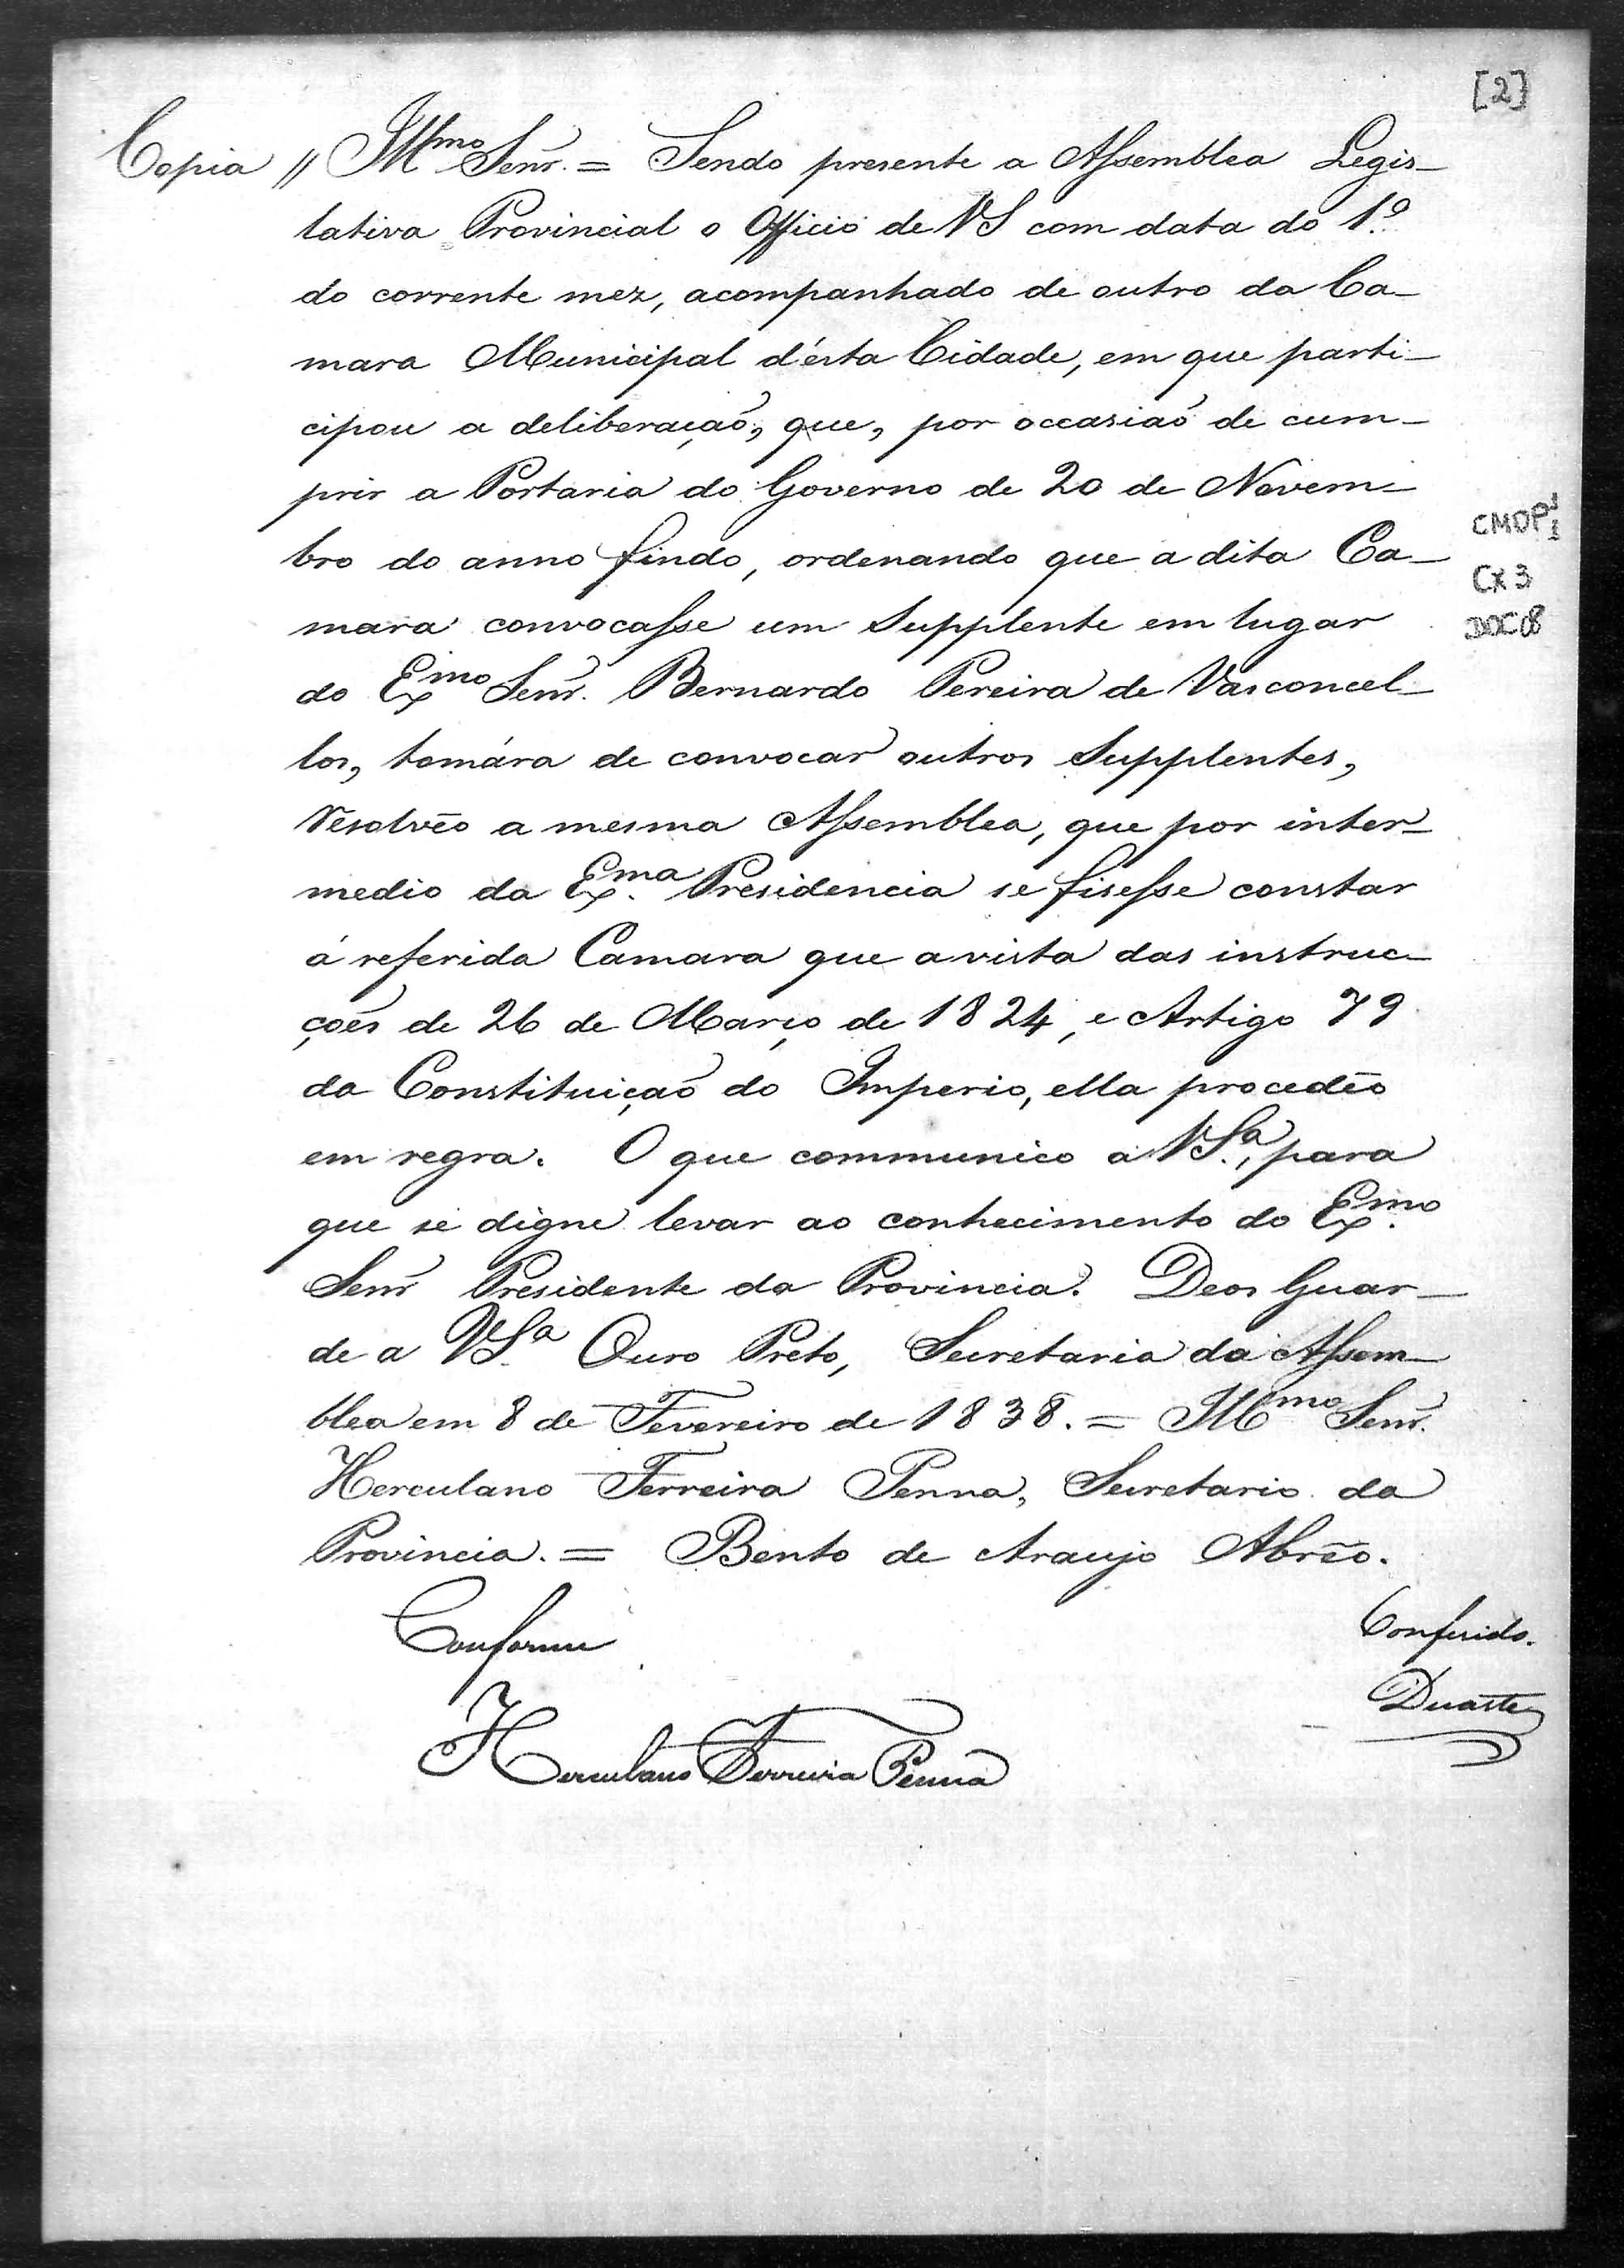 [2]
Copia // Illmo Senr. = Sendo presente a Assemblea Legis-
lativa Provincial o Officio de VS com data do 1.º
do corrente mez, acompanhado de outro da Ca-
mara Municipal d'ésta Cidade, em que parti-
cipou a deliberação, que, por occasião de cum-
prir a Portaria do Governo de 20 de Novem-
bro do anno findo, ordenando que a dita Ca-
mara convocasse um Supplente em lugar
do Exmo Senr. Bernardo Pereira de Vasconcel-
los, tomára de convocar outros Supplentes,
Resolvêo a mesma Assemblea, que por inter-
medio da Exma. Presidencia se fisesse constar
á referida Camara que a vista das instruc-
ções de 26 de Março de 1824, e Artigo 79
da Constituição do Imperio, ella procedêo
em regra. O que communico a VSa., para
que se digne levar ao conhecimento do Exmo.
Senr Presidente da Provincia. Deos Guar-
de a VSa. Ouro Preto, Secretaria da Assem-
blea em 8 de Fevereiro de 1838. = Illmo Senr.
Herculano Ferreira Penna, Secretario da
Provincia. = Bento de Araujo Abrêo.
Conforme
Herculano Ferreira Penna
Conferido.
Duarte
CMOP
CX 3
DOC 08